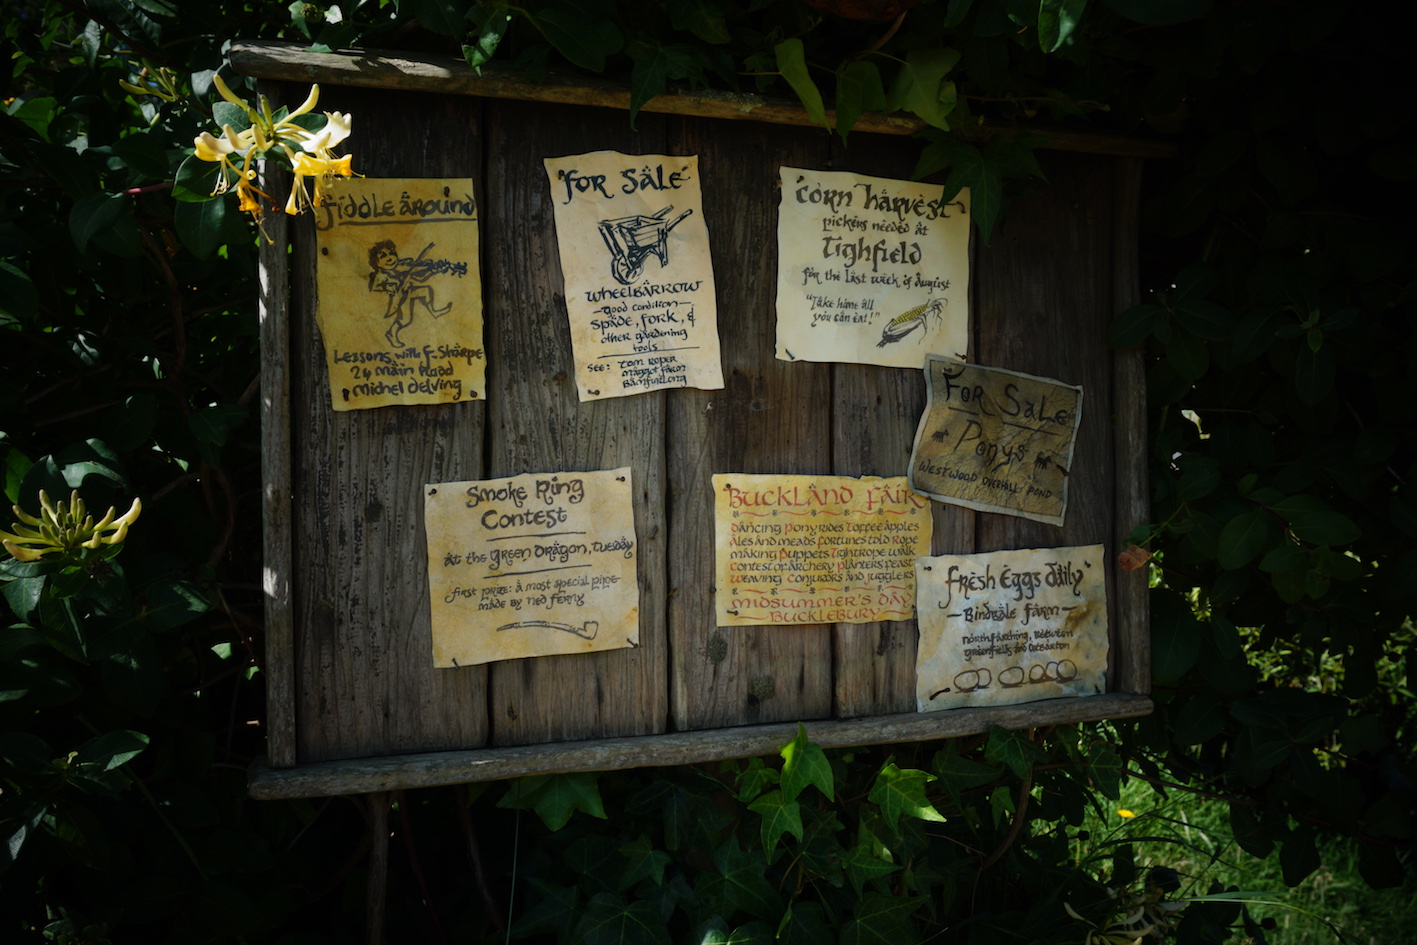 Fiddle Around
Lessons with F. Sharpe
24 Main Road
Michel Delving
For Sale
Wheelbarrow
-Good condition-
Spade, Fork, &
other gardening
tools
See: Tom Roper
Maggot Farm
Bamfurlong
Corn Harvest
pickers needed at
Tighfield
for the last week of August
"Take home all
you can eat!"
For Sale
Ponys
Westwood Overhill Pond
Smoke Ring
Contest
At the Green Dragon, Tuesday
First prize: a most special pipe
made by Ned Ferny
Buckland Fair
Dancing Pony rides Toffee apples
Ales and meads Fortunes told Rope
making Puppets Tightrope walk
Contest of archery Planters feast
Weaving Conjurors and jugglers
Midsummer's Day
Bucklebury
Fresh Eggs daily
-Bindbale Farm-
North Farthing, between
Greenfields and Oatbarton